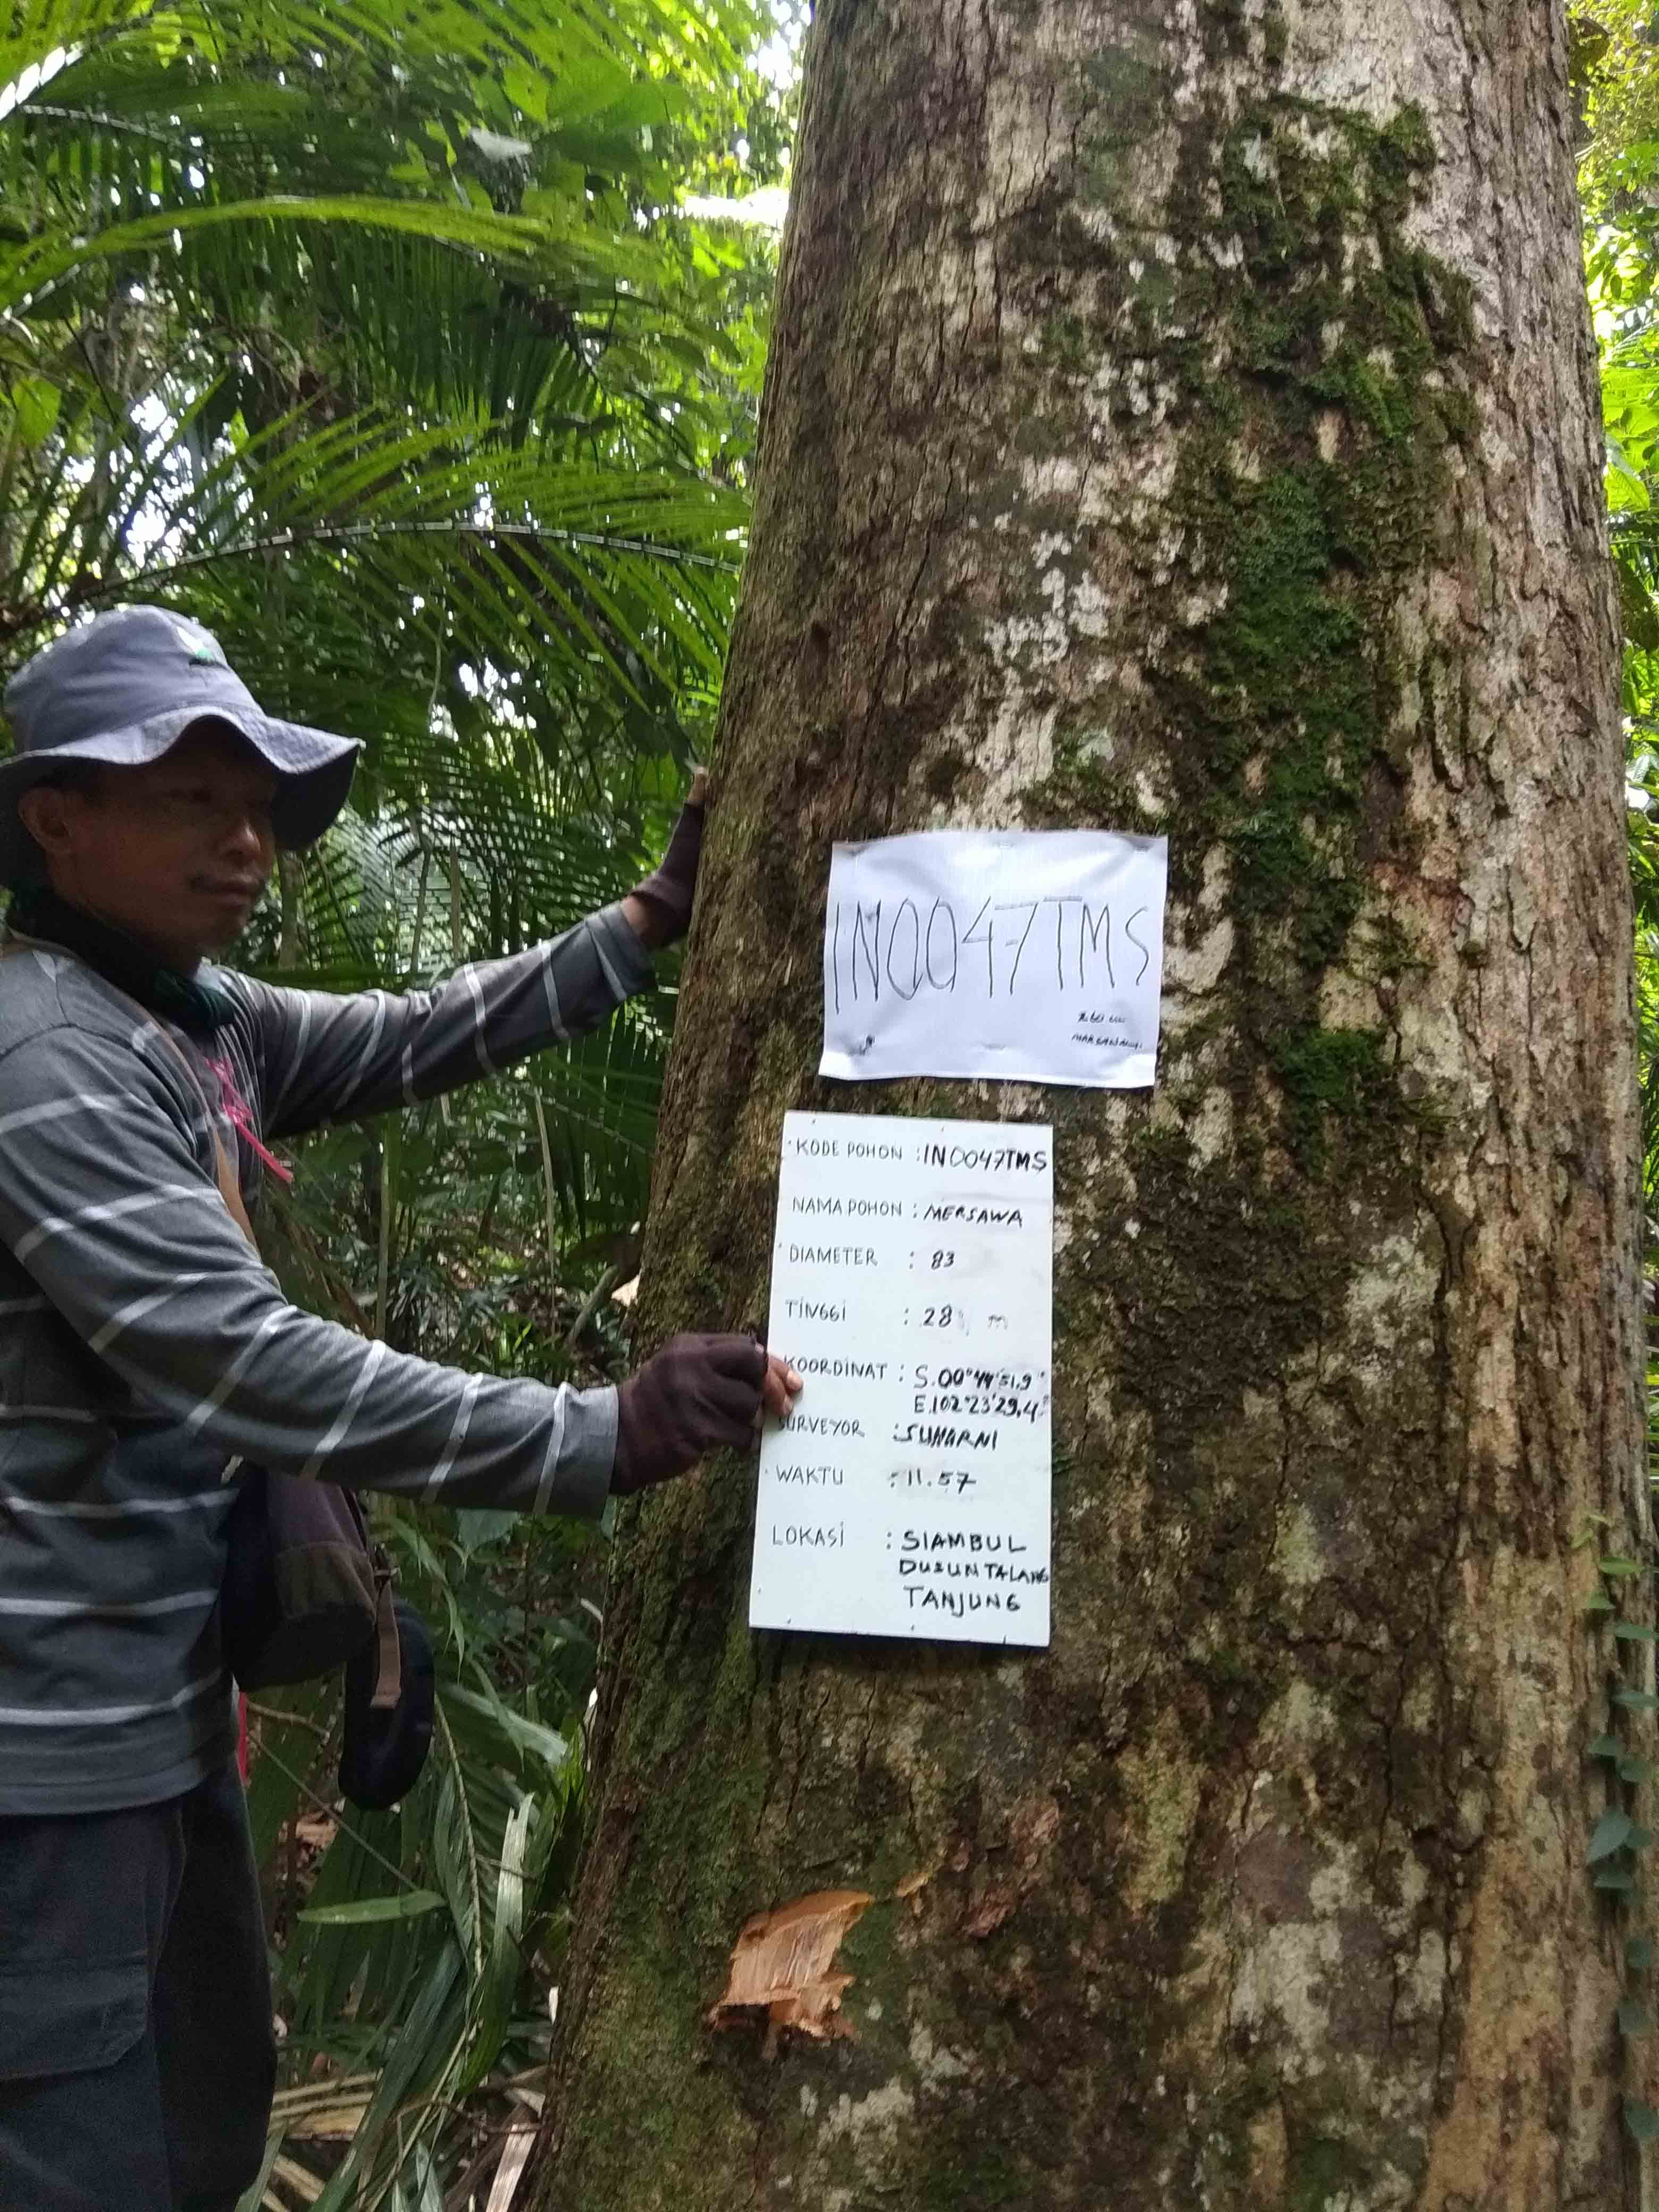 INO047TMS
KODE POHON : INO047TMS
NAMA POHON : MERSAWA
DIAMETER : 83
TINGGI : 28 m
KOORDINAT : S.00°44'51,9"
E.102°23'29,4"
SURVEYOR : SUHARNI
WAKTU : 11.57
LOKASI : SIAMBUL
DUSUN TALANG
TANJUNG